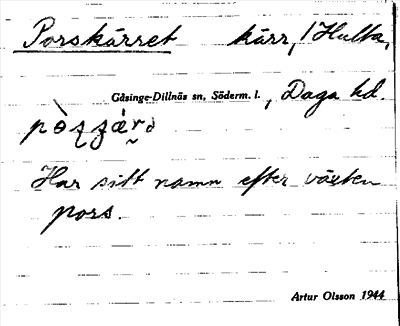 Porskärret kärr, 1 Hulta,
Gåsinge-Dillnäs sn, Söderm. l., Daga hd.
Har sitt namn efter växten
pors.
Artur Olsson 1944